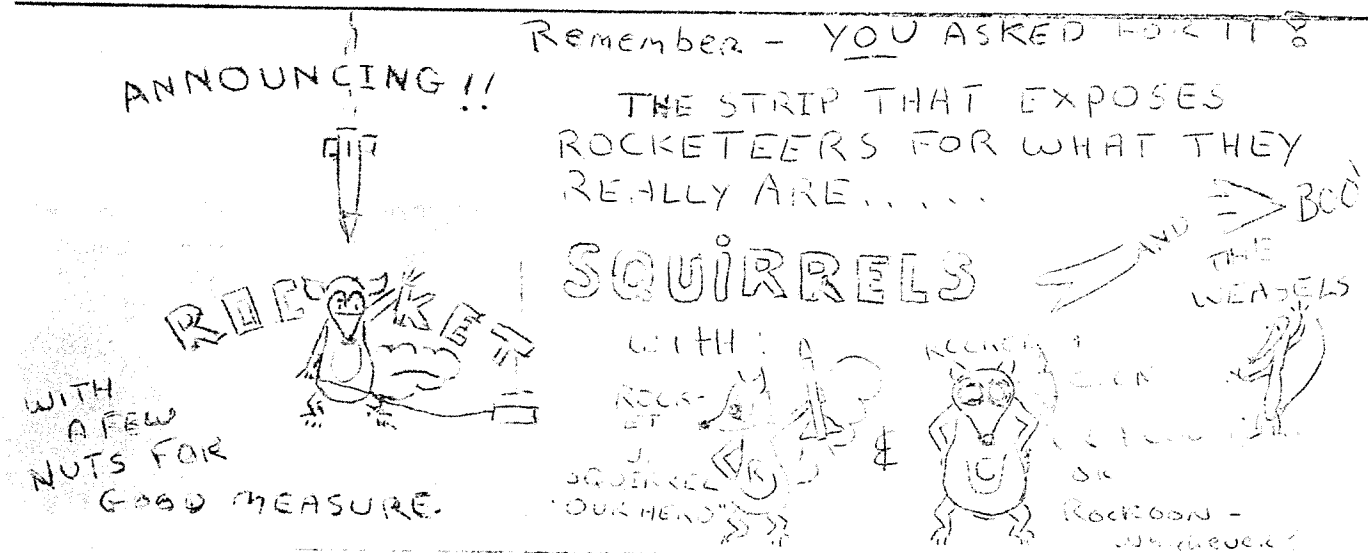 Remember - YOU ASKED FOR IT!
ANNOUNCING!!
THE STRIP THAT EXPOSES
ROCKETEERS FOR WHAT THEY
REALLY ARE.....
ROCKET
SQUIRRELS
AND
BOO!
THE
WEASELS
WITH
A FEW
NUTS FOR
GOOD MEASURE.
WITH:
ROCK-
ET
J.
SQUIRREL
"OUR HERO"
R
&
U
OR
ROCKOON -
WHICHEVER